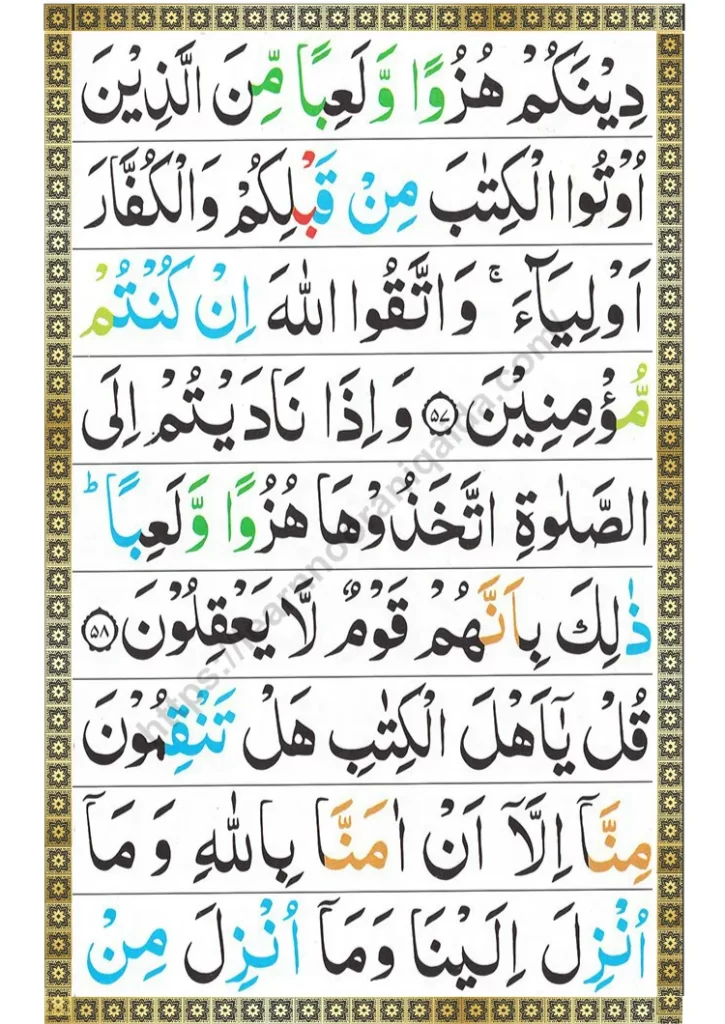 دِیْنَكُمْ هُزُوًا وَّلَعِبًا مِّنَ الَّذِیْنَ
اُوْتُوا الْكِتٰبَ مِنْ قَبْلِكُمْ وَالْكُفَّارَ
اَوْلِیَآءَ ۚ وَاتَّقُوا اللّٰهَ اِنْ كُنْتُمْ
مُّؤْمِنِیْنَ ﴿۵۷﴾ وَاِذَا نَادَیْتُمْ اِلَی
الصَّلٰوةِ اتَّخَذُوْهَا هُزُوًا وَّلَعِبًا ؕ
ذٰلِكَ بِاَنَّهُمْ قَوْمٌ لَّا یَعْقِلُوْنَ ﴿۵۸﴾
قُلْ یٰۤاَهْلَ الْكِتٰبِ هَلْ تَنْقِمُوْنَ
مِنَّاۤ اِلَّاۤ اَنْ اٰمَنَّا بِاللّٰهِ وَ مَاۤ
اُنْزِلَ اِلَیْنَا وَمَاۤ اُنْزِلَ مِنْ
https://learnnooraniqaida.com/